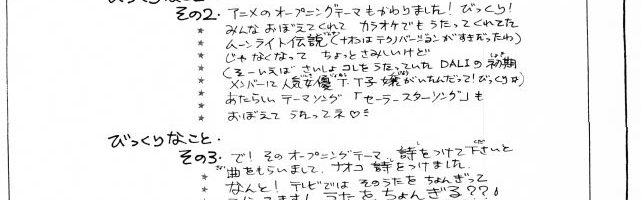 その2. アニメのオープニングテーマもかわりました!びっくり!
* みんなおぼえてくれて カラオケでもうたってくれてた
* ムーンライト伝説(ナオコはテクノバージョンがすきだったわ)
* じゃなくなって ちょっとさみしいけど
* (そーいえば さいしょコレをうたっていたDALIの初期
* メンバーに人気女優 T.T子嬢がいたんだって!びっくり☆)
* あたらしいテーマソング「セーラースターソング」も
* おぼえてうたってネ♡
びっくりなこと.
その3. で!そのオープニングテーマ、詩をつけて下さいと
* 曲をもらいまして、ナオコ 詩をつけました。
* なんと!テレビでは そのうたを ちょんぎって